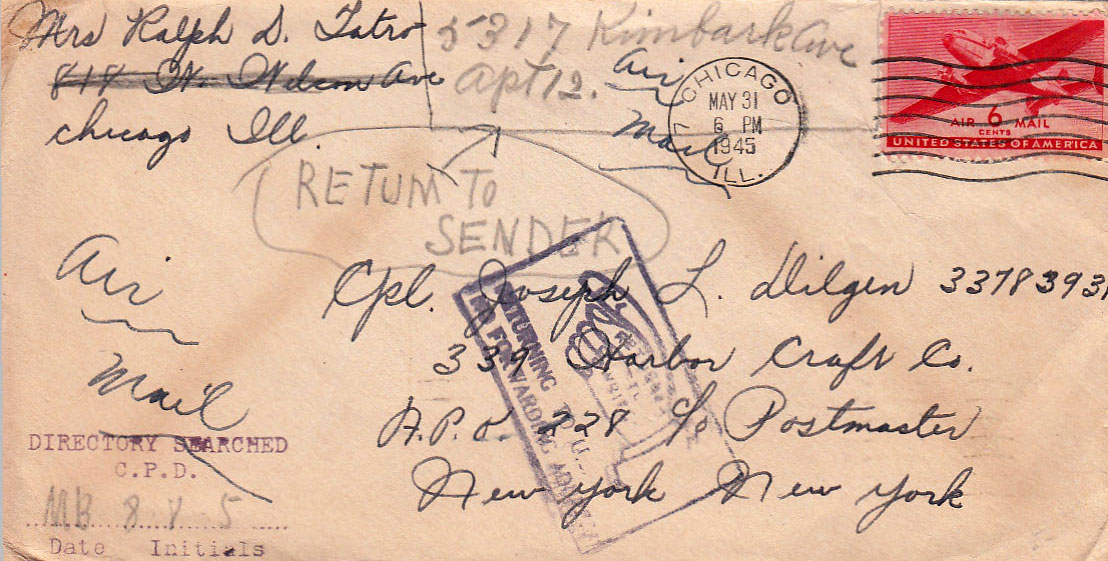 Mrs Ralph D. Tatro
818 W. Wilson Ave
Chicago Ill.
5317 Kimbark Ave
Apt 12.
Air
Mail
CHICAGO
MAY 31
6 PM
1945
ILL.
AIR 6 MAIL
CENTS
UNITED STATES OF AMERICA
RETURN TO
SENDER
Air
Mail
Cpl. Joseph L. Dilgen 33783931
339 Harbor Craft Co.
A.P.O. 228 c/o Postmaster
New York New York
RETURNING TO U.
NO FORWARDING ADDRESS
DIRECTORY SEARCHED
C.P.D.
MB 8 5
Date Initials